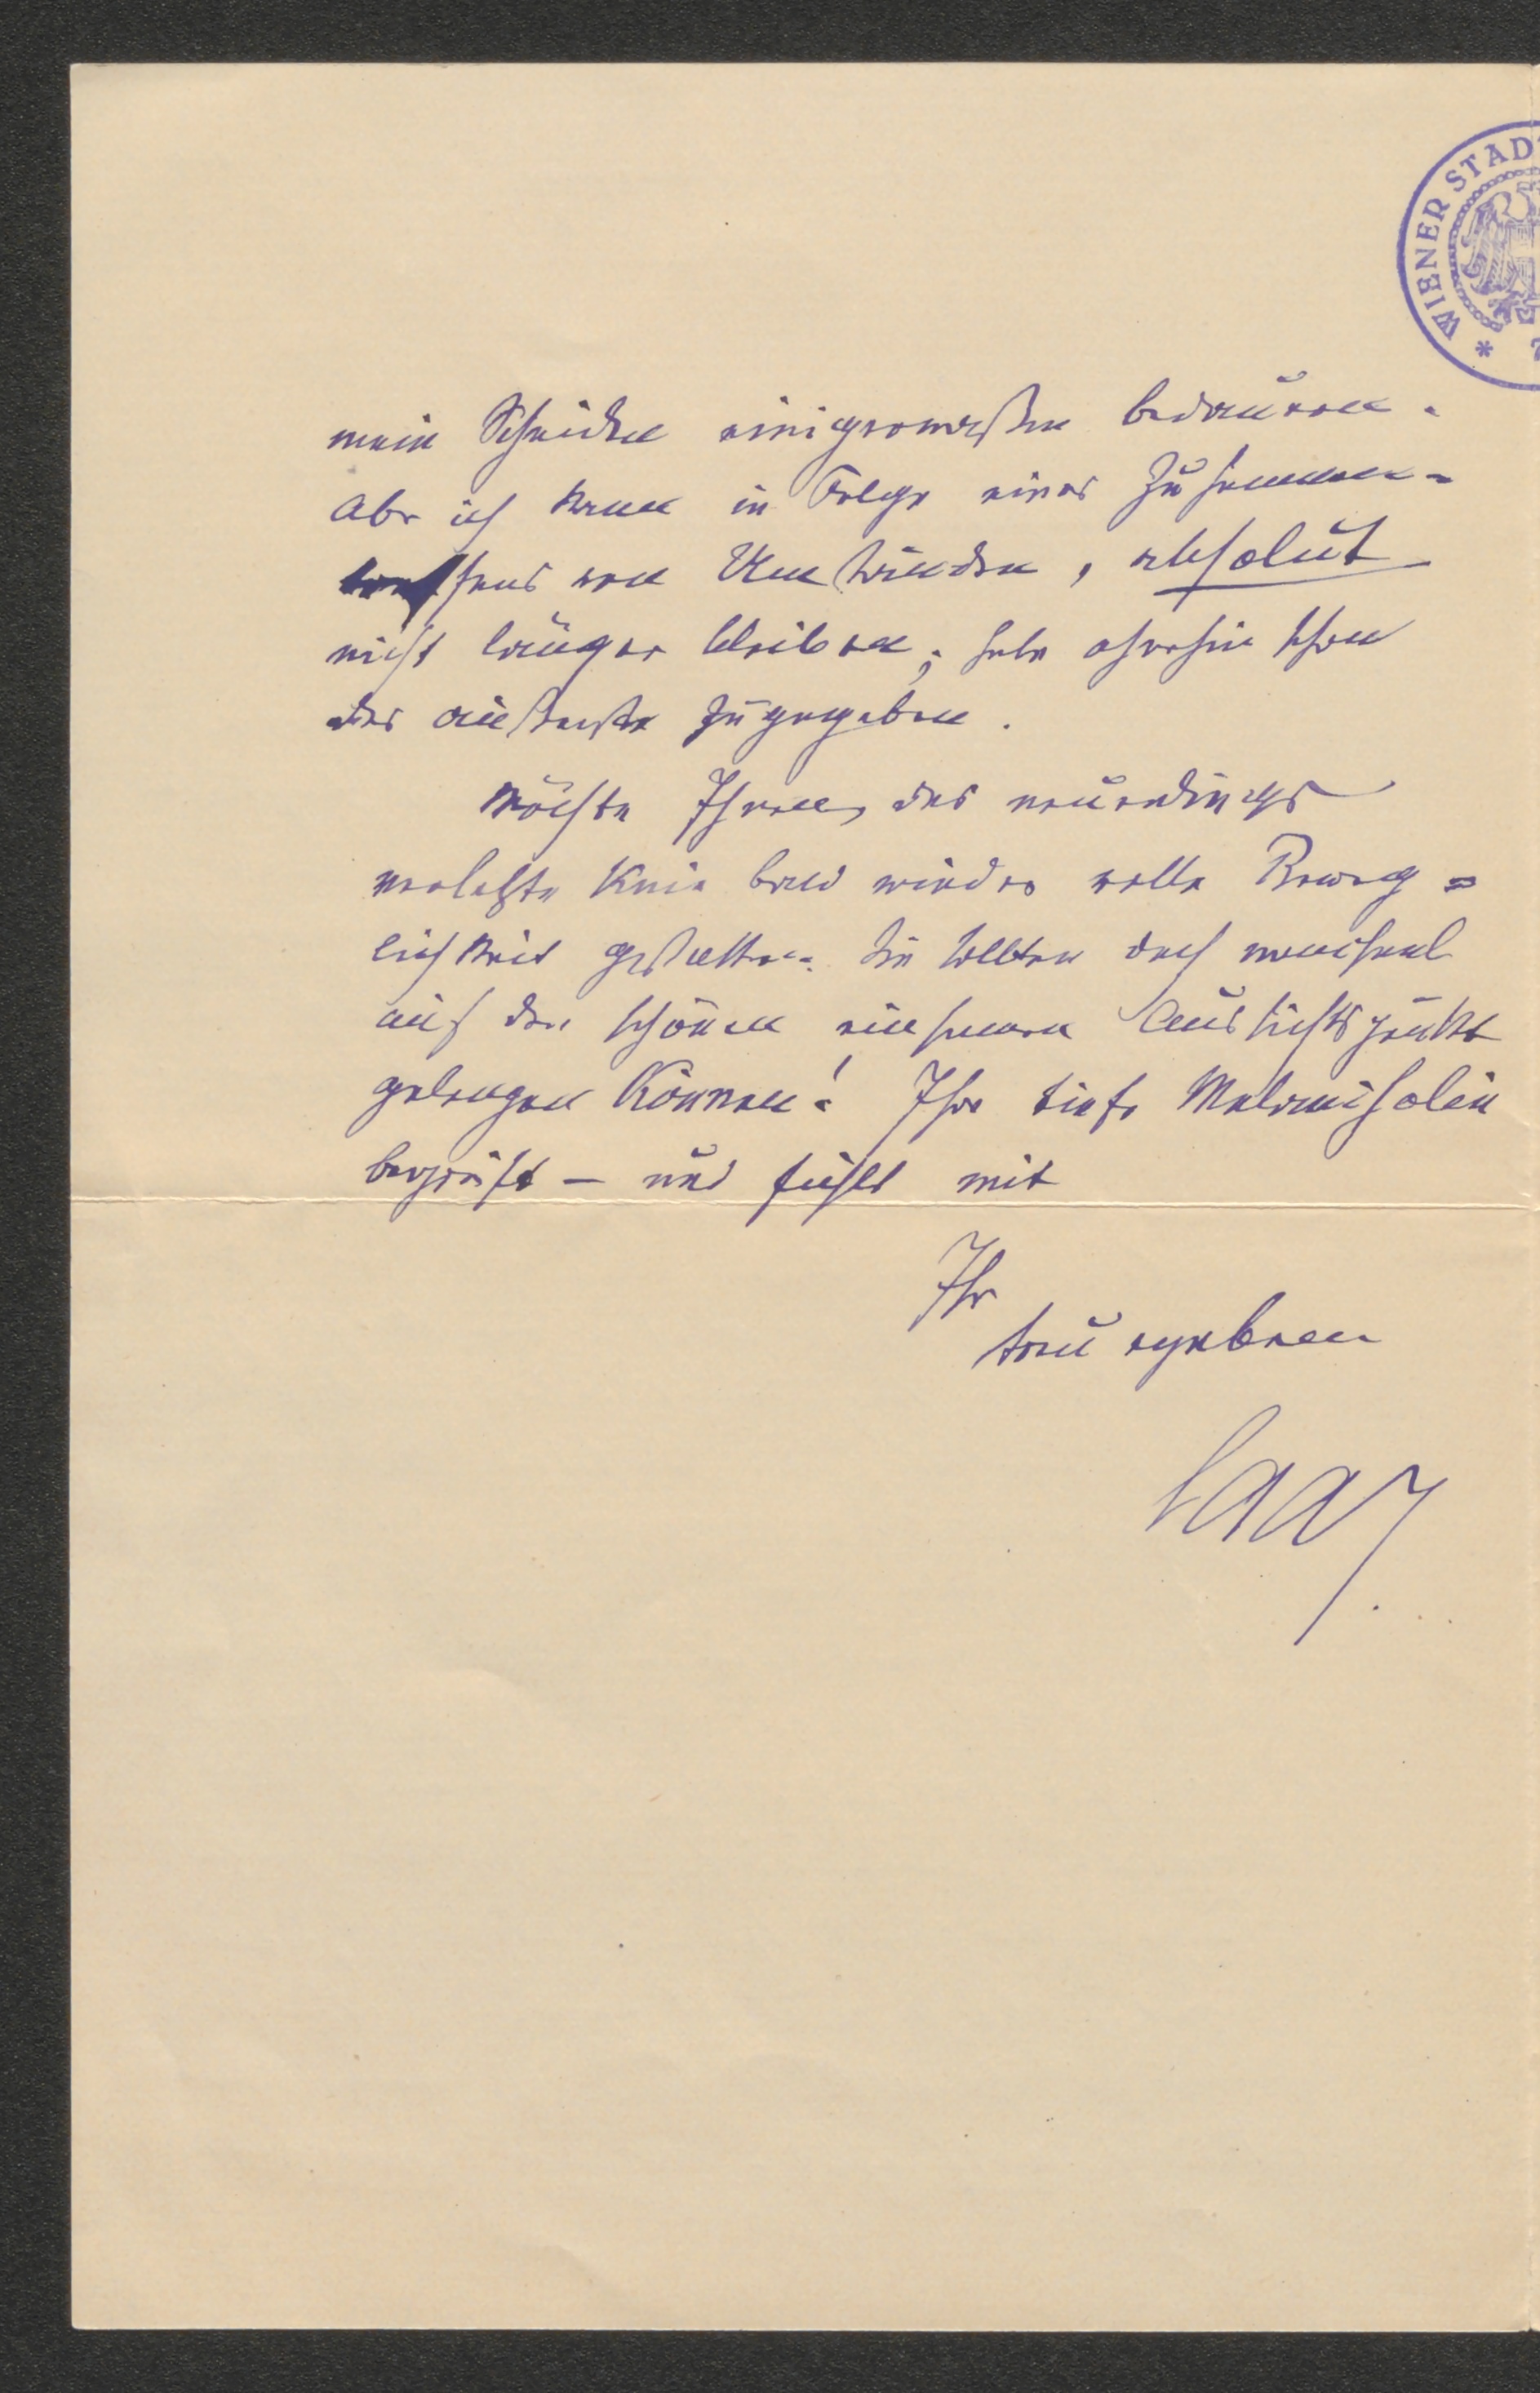 WIENER STAD
mein Scheiden einigermaßen bedauern.
Aber ich kann in Folge eines Zusammen-
treffens von Umständen, absolut
nicht länger bleiben; habe ohnehin schon
das äußerste zugegeben.
Möchte Ihnen das neuerdings
verletzte Knie bald wieder volle Beweg-
lichkeit gestatten. Sie sollten doch manchmal
auf den schönen einsamen Aussichtspunkt
gelangen können! Ihre tiefe Melancholie
begreift – und fühlt mit
Ihr
treu ergebener
Saar.